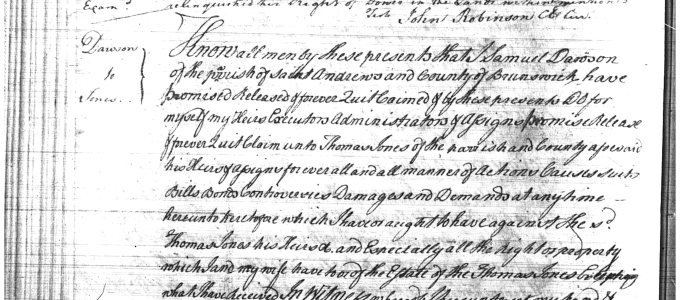 Exam.d
relinquished his Right of Dower in the Lands within mentioned
Test John Robinson Cl Cur.
Dawson
to
Jones..
Know all men by these presents that I Samuel Dawson
of the parish of saint Andrews and County of Brunswick have
promised Released & forever Quit Claimed & by these presents DO for
myself my Heirs Executors Administrators & Assigns promise Release
& forever Quit Claim unto Thomas Jones of the parrish and County aforesaid
his Heirs & assigns forever all and all manner of Actions Causes suits
Bills Bonds Controversies Damages and Demands at any time
hereunto heretofore which I have or aught to have against the sd.
Thomas Jones his Heirs &c. and Especially all the Right or property
which I and my wife have to or of the Estate of the Thomas Jones Excepting
what I have received In Witness whereof I